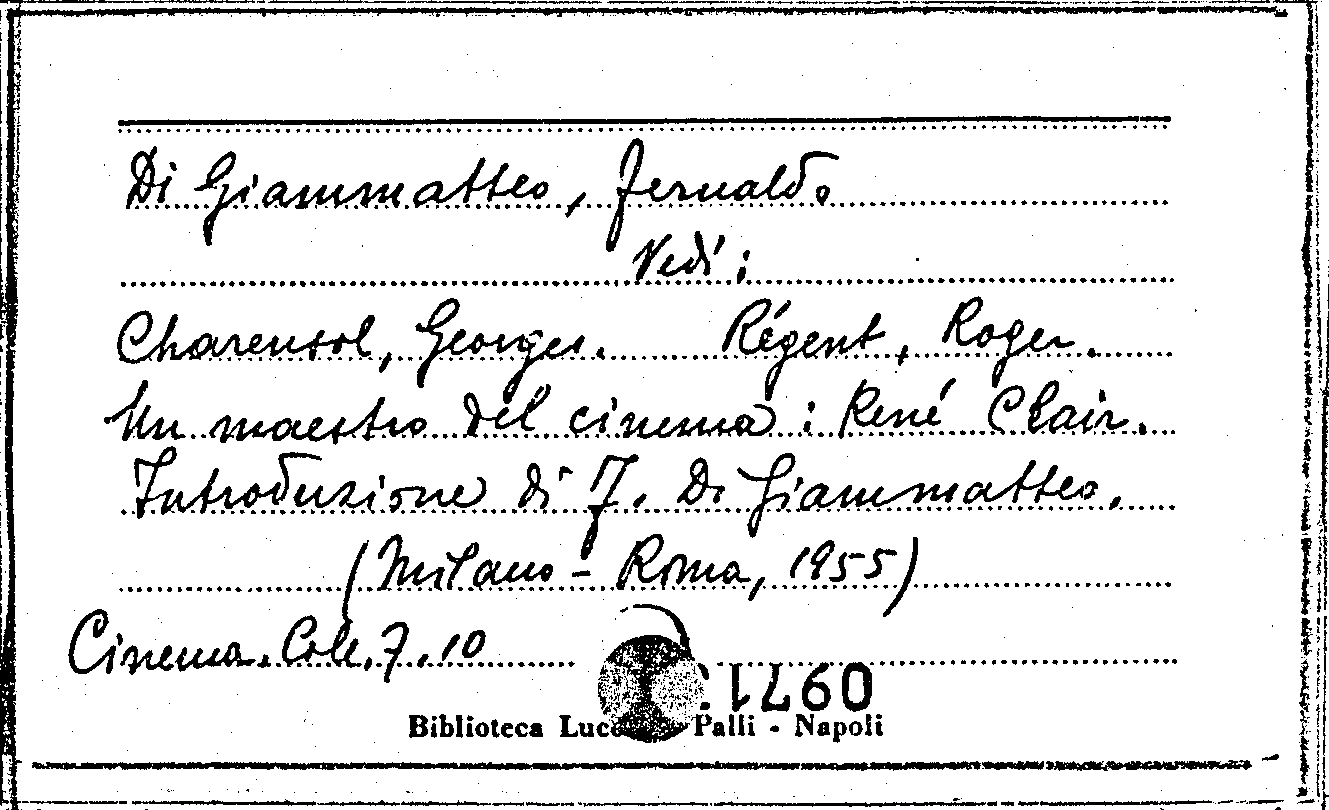 Di Giammatteo, Fernaldo
Vedi:
Charensol, Georges. Régent, Roger.
Un maestro del cinema: René Clair.
Introduzione di F. Di Giammatteo.
(Milano - Roma, 1955)
Cinema. Coll. 7.10
0971
Biblioteca Palli - Napoli